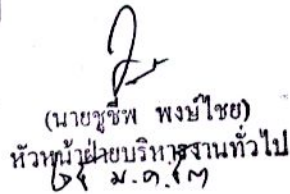 (นายชูชีพ พงษ์ไชย)
หัวหน้าฝ่ายบริหารงานทั่วไป
ม.ค.